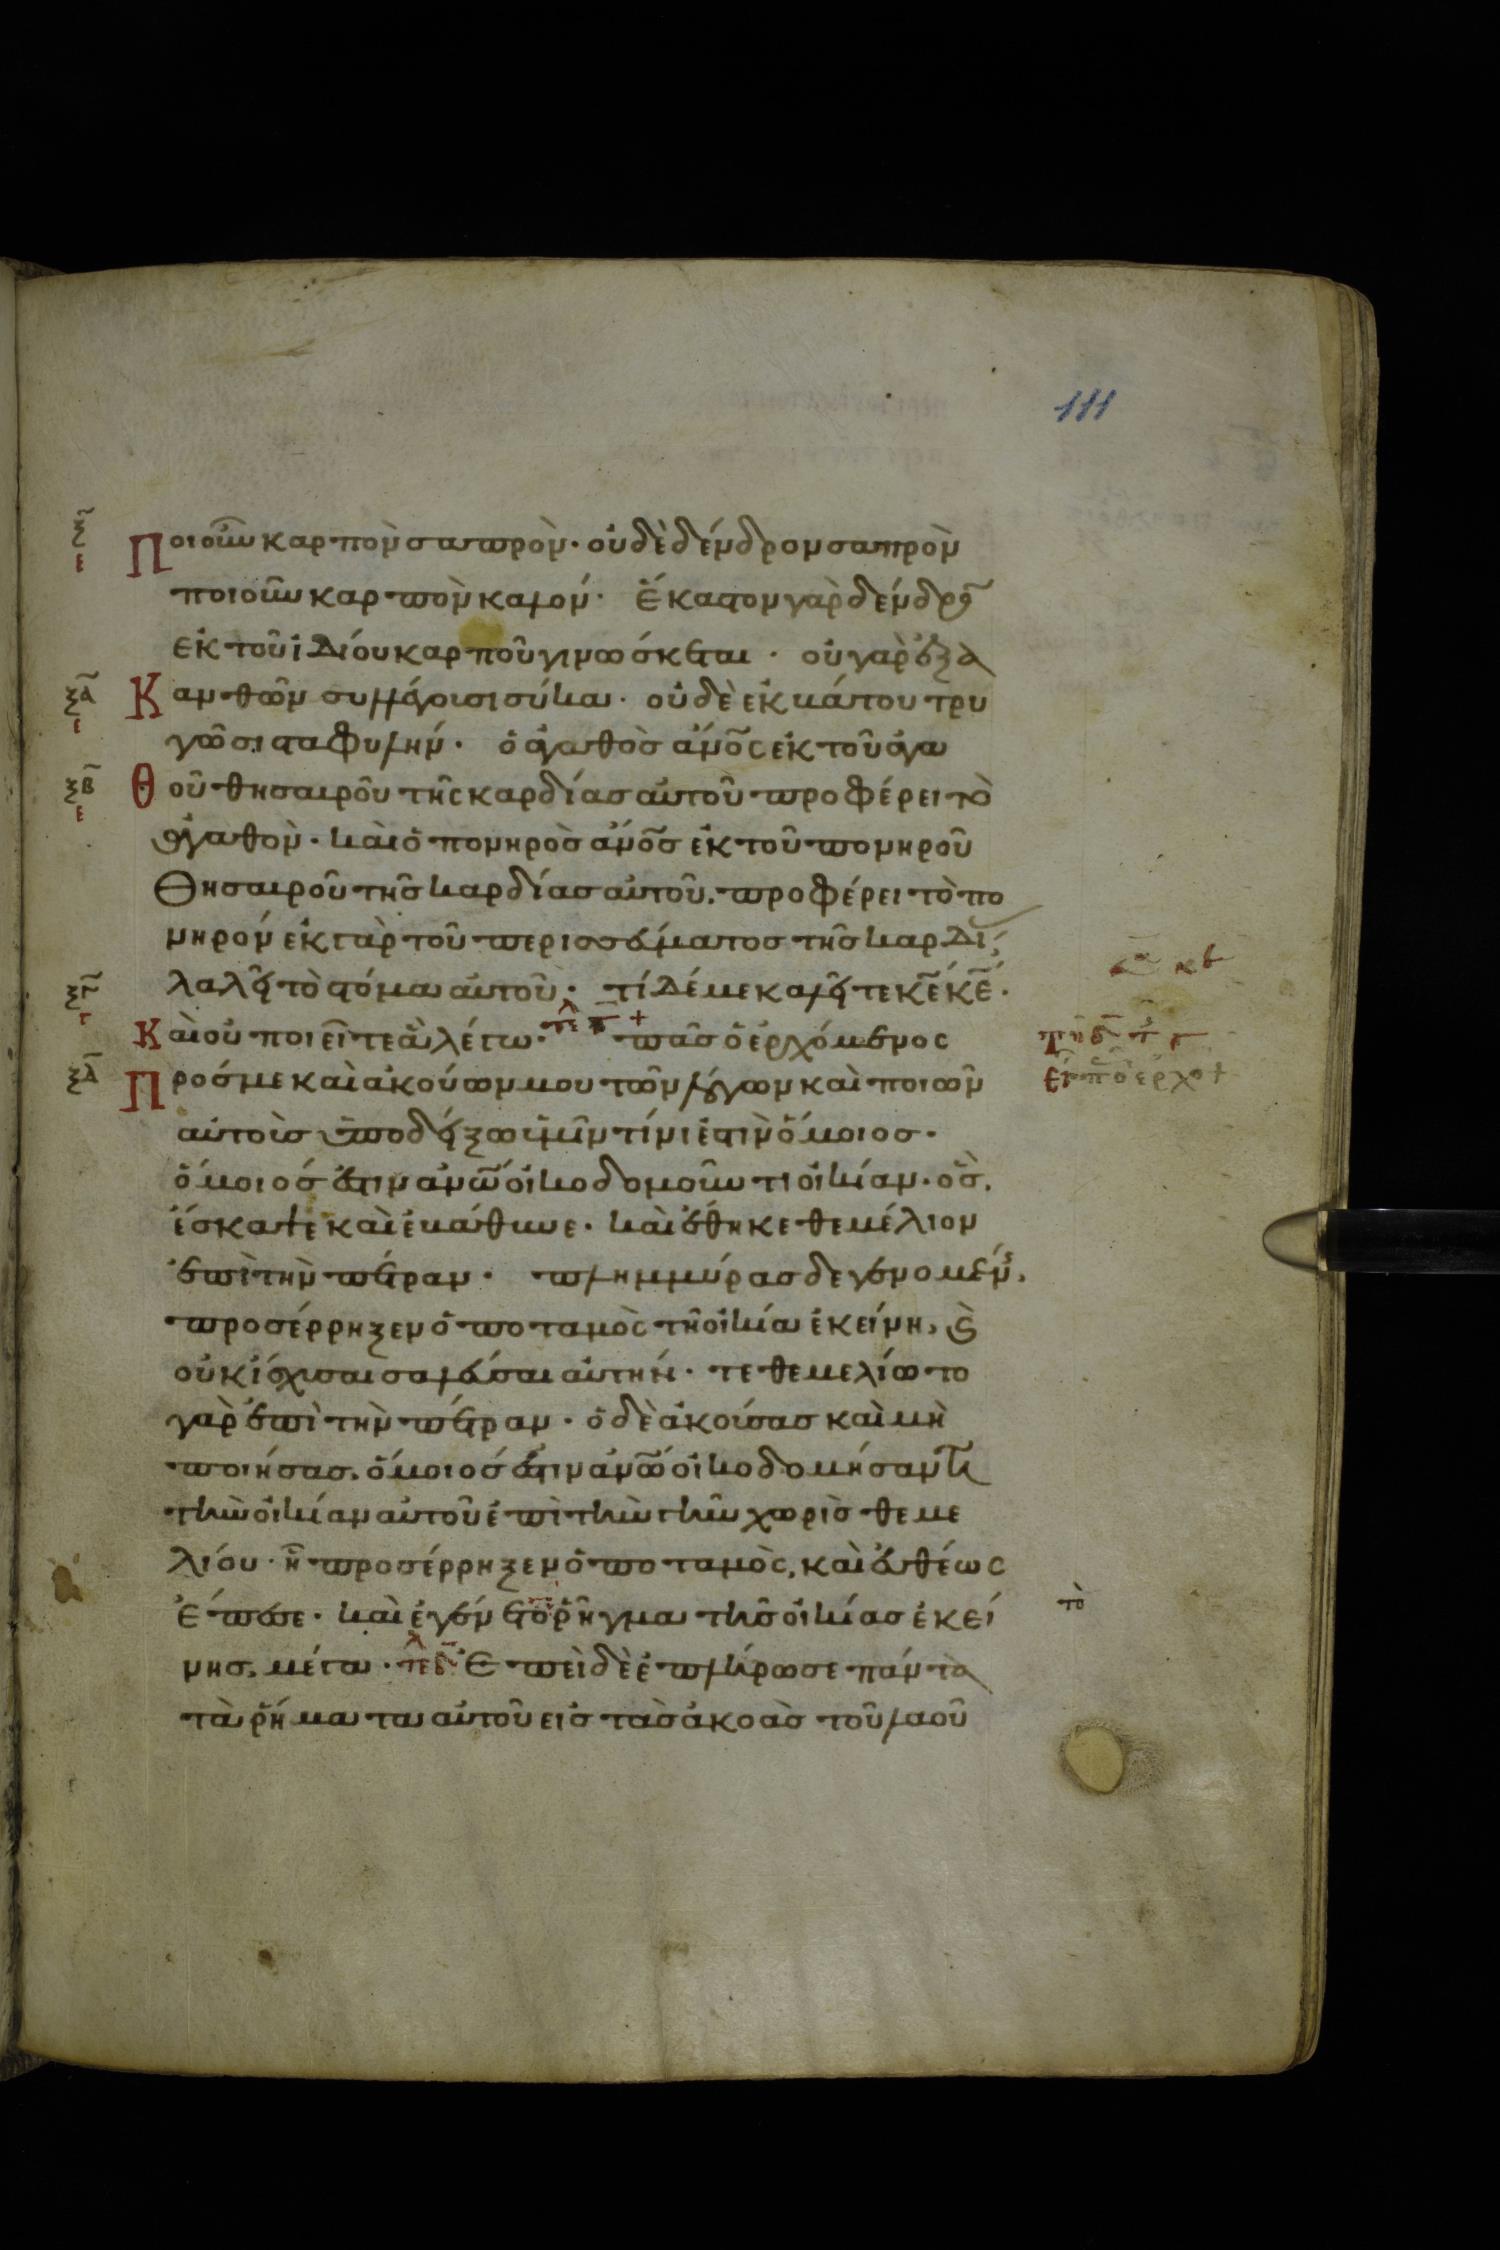 111
Ποιοῦν καρπὸν σαπρὸν· οὐδὲ δένδρον σαπρὸν
ποιοῦν καρπὸν καλόν· Ἕκαστον γὰρ δένδρον
ἐκ τοῦ ἰδίου καρποῦ γινώσκεται· οὐ γὰρ ἐξ ἀ
Κανθῶν συλλέγουσι σύκα· οὐδὲ ἐκ βάτου τρυ
γῶσι σταφυλήν· ὁ ἀγαθὸς ἄνος ἐκ τοῦ ἀγα
Θοῦ θησαυροῦ τῆς καρδίας αὐτοῦ προφέρει τὸ
ἀγαθὸν· καὶ ὁ πονηρὸς ἄνος ἐκ τοῦ πονηροῦ
Θησαυροῦ τῆς καρδίας αὐτοῦ, προφέρει τὸ πο
νηρόν ἐκ γὰρ τοῦ περισσεύματος τῆς καρδί
λαλεῖ τὸ στόμα αὐτοῦ· τί δέ με καλεῖτε κε κε·
Καὶ οὐ ποιεῖτε ἃ λέγω· πᾶς ὁ ἐρχόμενος
Πρός με καὶ ἀκούων μου τῶν λόγων καὶ ποιῶν
αὐτοὺς ὑποδείξω ὑμῖν τίνι ἐστὶν ὅμοιος·
ὅμοιός ἐστιν ἀνω οἰκοδομοῦντι οἰκίαν· ὃς,
ἔσκαψε καὶ ἐβάθυνε· καὶ ἔθηκε θεμέλιον
ἐπὶ τὴν πέτραν· πλημμύρας δε γενομέν,
προσέρρηξεν ὁ ποταμὸς τῇ οἰκία ἐκείνη, ϗ
οὐκ ἴσχυσαι σαλεύσαι αὐτήν· τεθεμελίωτο
γὰρ ἐπὶ τὴν πέτραν· ὁ δὲ ἀκούσας καὶ μὴ
ποιήσας, ὅμοιός ἐστιν ἀνω οἰκοδομήσαντι
τὴν οἰκίαν αὐτοῦ ἐπὶ τὴν γῆν χωρὶς θεμε
λίου· ἧ προσέρρηξεν ὁ ποταμὸς, καὶ εὐθέως
Ἔπεσε· καὶ ἐγένετο ῥῆγμα τῆς οἰκίας ἐκεί
νης, μέγα· Ἐπεὶ δὲ ἐπλήρωσε πάντα
τὰ ῥήματα αὐτοῦ εἰς τὰς ἀκοὰς τοῦ λαοῦ
ξ
ε
ξα
ε
ξβ
ε
ξγ
γ
ξδ
τὸ